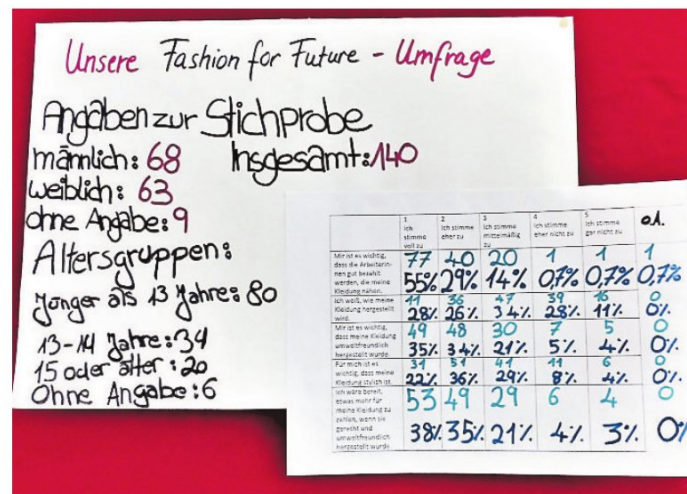 Unsere Fashion for Future - Umfrage
Angaben zur Stichprobe
männlich: 68 Insgesamt: 140
weiblich: 63
ohne Angabe: 9
Altersgruppen:
Jünger als 13 Jahre: 80
13-14 Jahre: 34
15 oder älter: 20
Ohne Angabe: 6
1 2 3 4 5 o1.
Ich stimme voll zu Ich stimme eher zu Ich stimme mittelmäßig zu Ich stimme eher nicht zu Ich stimme gar nicht zu
Mir ist es wichtig, dass die Arbeiterinnen gut bezahlt werden, die meine Kleidung nähen.
77 40 20 1 1 1
55% 29% 14% 0,7% 0,7% 0,7%
Ich weiß, wie meine Kleidung hergestellt wird.
11 36 47 39 16 0
28% 26% 34% 28% 11% 0%
Mir ist es wichtig, dass meine Kleidung umweltfreundlich hergestellt wurde.
49 48 30 7 5 0
35% 34% 21% 5% 4% 0%
Für mich ist es wichtig, dass meine Kleidung stylish ist.
31 51 41 11 6 0
22% 36% 29% 8% 4% 0%
Ich wäre bereit, etwas mehr für meine Kleidung zu zahlen, wenn sie gerecht und umweltfreundlich hergestellt wurde.
53 49 29 6 4 0
38% 35% 21% 4% 3% 0%